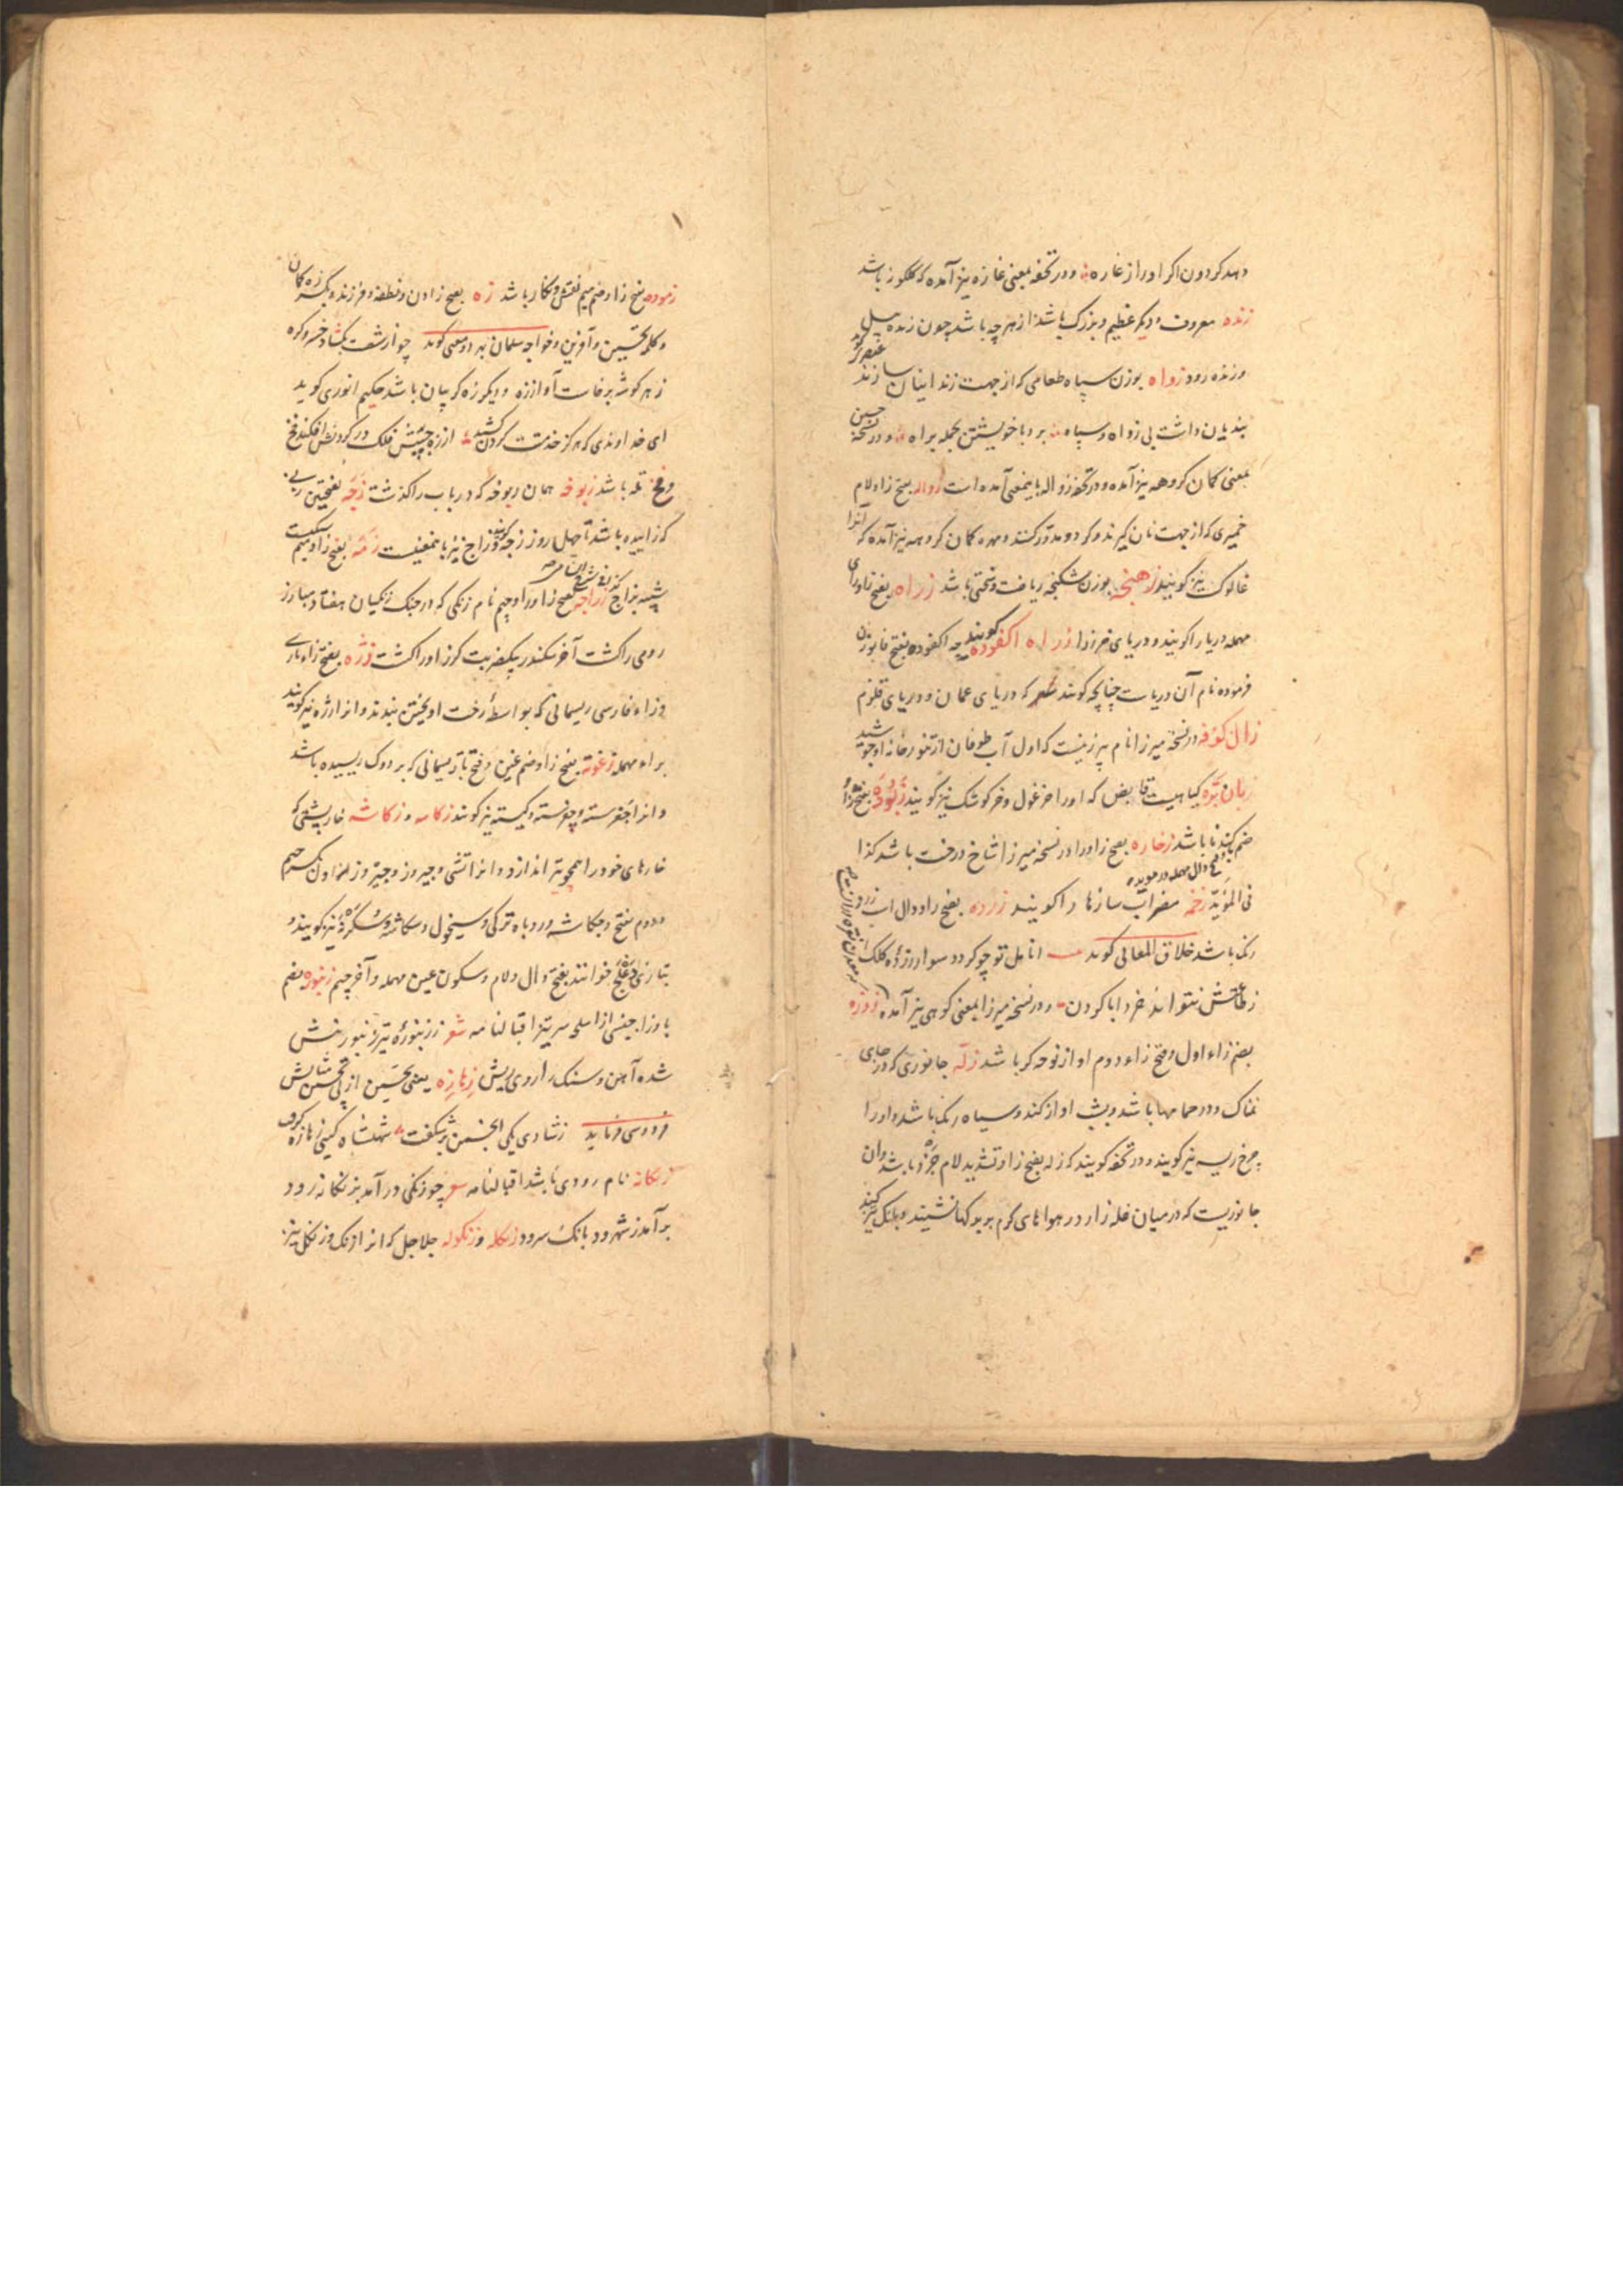 دهد کردون اکر اورا زغاره و در تحفه بمعنی غازه نیز آمده که کلکونه باشد
زنده معروف و دیکر عظیم و بزرک باشد از هرچه باشد چون زنده پیل
و زنده رود زواه بوزن سپاه طعامی که از جهت زندانیان سازند عنصری کوید
بندیان داشت بی زواه و سپاه برد با خویشتن بجمله براه و در نسخهٔ حسین
بمعنی کمان کروهه نیز آمده و در تحفه زواله باینمعنی آمده است زواله بفتح زا و لام
خمیری که از جهت نان کیرند و کرد و مدور کنند و مهره کمان کروهه نیز آمده که آنرا
غالوک نیز کویند زهنجه بوزن شکنجه ریاضت و سختی باشد زراه بفتح زا و رای
مهمله دریا را کویند و دریای خزر را زراه اکفوده کویند چه اکفوده بفتح فا بوزن
فرموده نام آن دریاست چنانچه کویند که دریای عمان و دریای قلزم
زال کوفه در نسخه میرزا نام پیرزنیست که اول آب طوفان از تنور خانه او جوشید
زبان بره کیاهیست قابض که اورا خرغول و خرکوشک نیز کویند زبوده بفتح زا و
ضم با کندنا باشد زخاره بفتح زا و را در نسخه میرزا شاخ درخت باشد کذا
فی المؤید زخمه مضراب سازها را کویند زرده بفتح زا و دال اسب زرد
رنک باشد خلاق المعالی کوید انامل تو چو کردد سوار زرده کلک
ز طاعتش نتواند خرد ابا کردن و در نسخه میرزا بمعنی کوهی نیز آمده زوزه
بضم زاء اول و فتح زاء دوم اواز نوحه کر باشد زله جانوری که در جای
نمناک و در حمامها باشد و بشب اواز کند و سیاه رنک باشد و اورا
چرخ ریسه نیز کویند و در تحفه کویند که زله بفتح زا و تشدید لام جزد باشد و ان
جانوریست که در میان غله زار در هواهای کرم بر بوکها نشیند و بانک تیز کند
زموده بفتح زا و ضم میم نقش و نکار باشد زه بفتح زادن و نطفه و فرزند و بکسر زه کمان
و کلمه تحسین و آفرین و خواجه سلمان بهر دو معنی کوید چو از شصت بکشاد خسرو کره
ز هر کوشه برخاست آواز زه و دیکر زه کریبان باشد حکیم انوری کوید
ای خداوندی که هرکز خدمتت کردن کشید از زه جیبش فلک در کردنش افکند فخ
و فخ تله باشد زبوخه همان ربوخه که در باب را کذشت زچه بفتحتین زنی
که زاییده باشد تا چهل روز زمه بفتح زا و میم
شبه زراجه بفتح زا و را و جیم نام زنکی که در جنک زنکیان هفتاد مبارز
رومی را کشت آخر سکندر بیکضربت کرز اورا کشت زژه بفتح زاء تازی
و زاء فارسی ریسمانی که بواسطهٔ رخت اویختن بندند و انرا رژه نیز کویند
براء مهمله زغوته بفتح زا و ضم غین و فتح تا ریسمانی که بر دوک ریسیده باشد
و انرا جغرسته و چغرسته و کیسته نیز کویند زکاسه و زکاشه خارپشتی که
خارهای خود را همچو تیر اندازد و انرا تشی و جیروز و جیزو بکسر جیم
و دوم بفتح و جکاشه و روباه ترکی و سیخول و سکاشه و سکرنه نیز کویند و
بتازی دلعج خوانند بفتح دال و لام و سکون عین مهمله و آخر جیم زنبوره بضم
با و زا جنسی از اسلحه سر تیز اقبالنامه شعر ز زنبورهٔ تیر زنبور نیش
شده آهن و سنک را روی ریش زهازه یعنی تحسین از پی تحسین شاباش
فردوسی فرماید ز شادی یکی انجمن برشکفت شهنشاه کیتی زهازه کرفت
زنکانه نام رودی باشد اقبالنامه شعر چو زنکی درآمد بزنکانه رود
برآمد ز شهرود بانک سرود زنکله و زنکوله جلاجل که انرا زنک و زنکل نیز